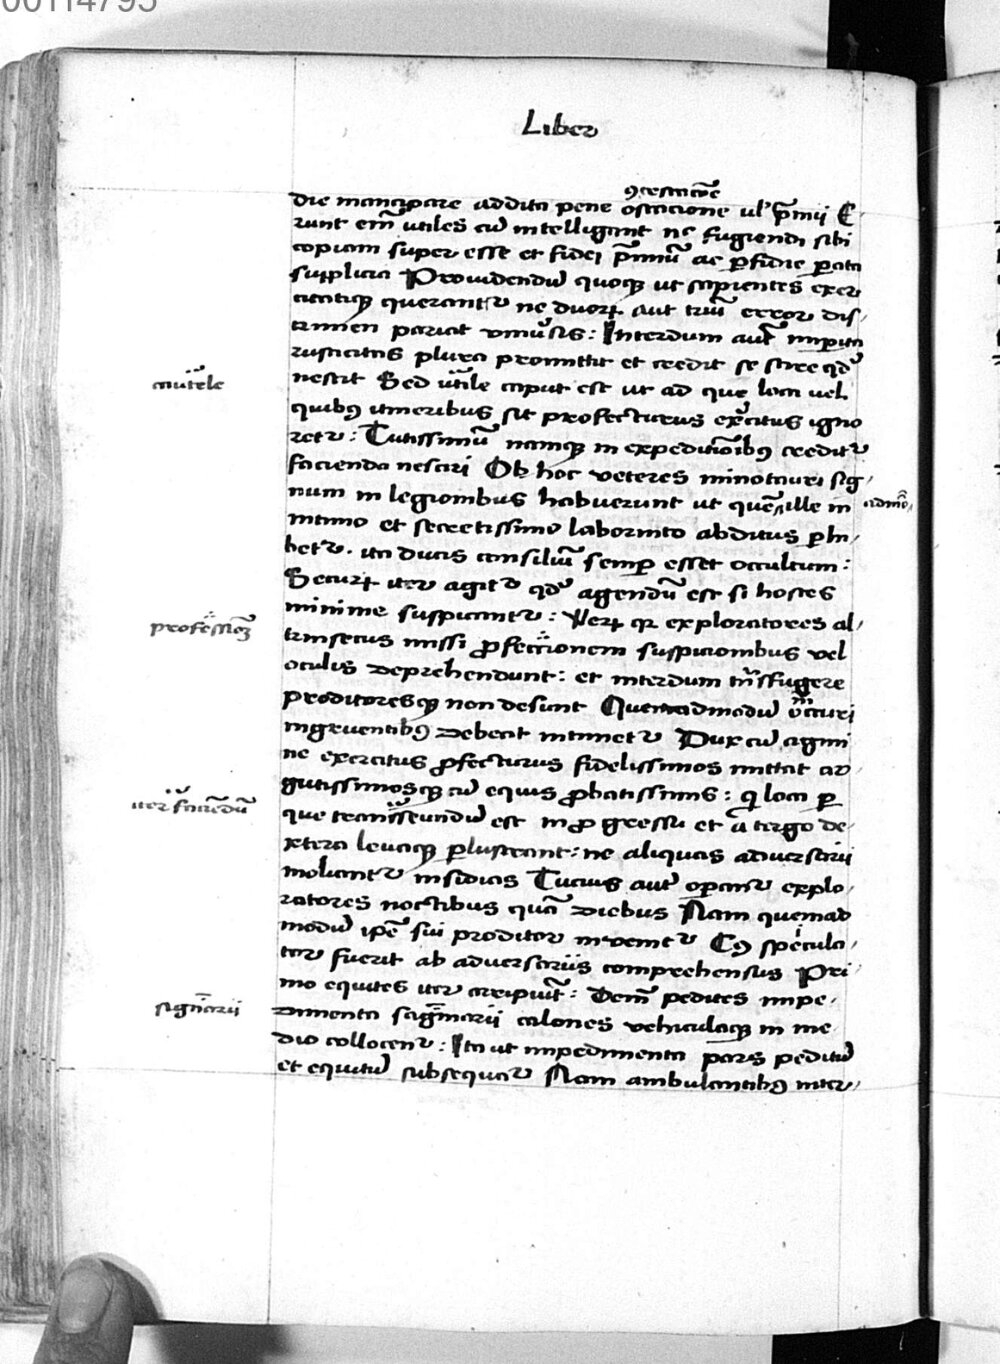 00114795
Liber
ꝯtestaciõe
die mancipare addita pene ostacione ul' p̃mij E
runt em̃ utiles cũ intelligant nc̃ fugiendi sibi
copiam super esse et fidei p̃miũ ac ꝑfidie ꝑata
supplicia Prouidendũ quoqꝫ ut sapientes exer
citatiqꝫ querantʳ ne duoꝝ aut triũ error dis/
crimen pariat vniũsis: Interdum aut̃ imꝑita
rusticitas plura promittit et credit se scire qd̃
cautele
nescit Sed utĩle caput est ut ad que loca uel
quibꝫ itineribus sit profecturus exercitus igno
retʳ: Tutissimũ namqꝫ in expeditiõibꝫ creditʳ
facienda nesciri Ob hoc veteres minotauri sig/
num in legionibus habuerunt ut quẽ ille in
admõ
intimo et secretissimo laborinto abditus ꝑhi/
betʳ. ita ducis consiliũ semꝑ esset occultum:
Securꝝ iter agitʳ qd̃ agendũ est si hostes
minime suspicantʳ: Verꝝ qꝛ exploratores al/
profẽssiõꝫ
trinsecus missi ꝓfectionem suspicionibus vel
oculis deprehendunt: et interdum trãsfugere
proditoresqꝫ non desunt Quemadmodũ occuri
ingruentibꝫ debeat intimetʳ Dux cũ agmi
ne exercitus ꝓfecturus fidelissimos mittat ar
gutissimosqꝫ cũ equis ꝓbatissimis: q̃ loca ꝑ
iter faciẽdũ
que transseundũ est in ꝓgressu et ã tergo de/
xtera leuaqꝫ ꝑlustrant: ne aliquas aduersarij
moliantʳ insidias Tucius aut̃ oꝑantʳ explo/
ratores noctibus quã diebus Nam quemad
modũ ipẽ sui proditor inuenitʳ Cꝰ specula/
tor fuerit ab aduersarijs comprehensus Pri/
mo equites iter arripiũt: Deinde pedites impe/
signarij
dimenta sagmarij calones vehiculaqꝫ in me/
dio collocentʳ: Ita ut impedimenta pars peditũ
et equitũ subsequatʳ Nam ambulantibꝫ inter/